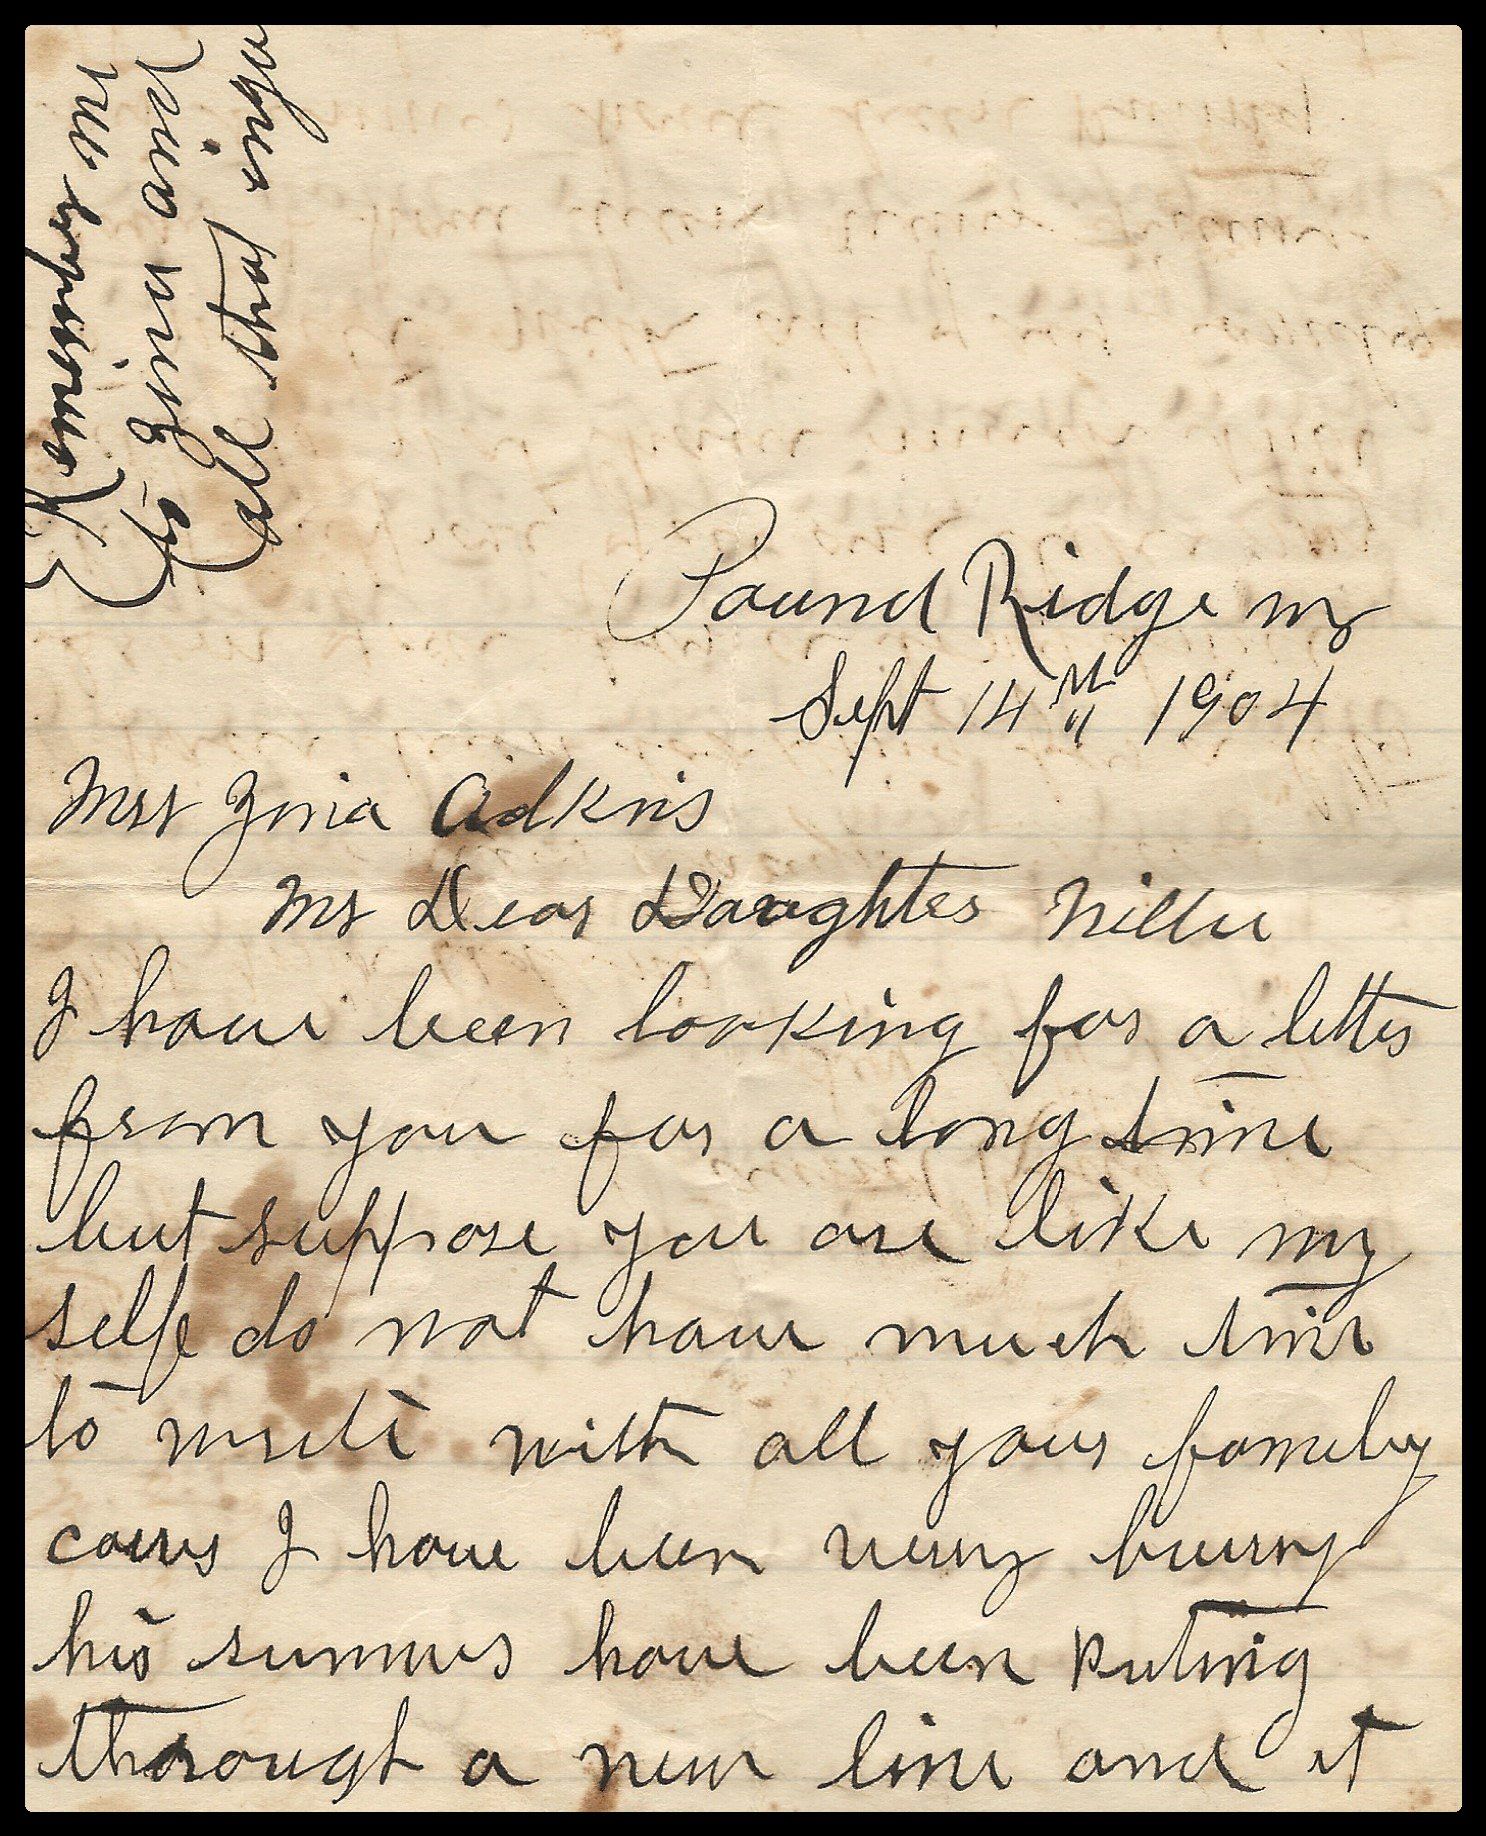 Pound Ridge ny
Sept 14th 1904
Mrs Zinia Adkins
My Dear Daughter Nillie
I have been looking for a letter
from you for a long time
but suppose you are like my
selfe do not have much time
to write with all your family
cares I have been very buisy
his summer have been puting
through a new line and it
all that
and